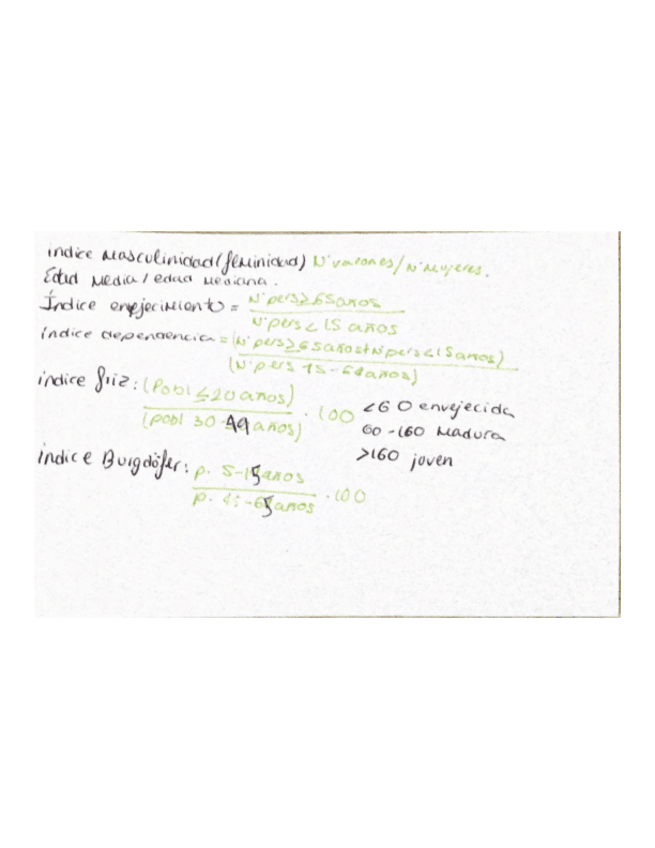 indice masculinidad (feminidad) Nº varones/Nº mujeres.
Edad media / edad mediana.
Índice envejecimiento = Nº pers ≥ 65 años
Nº pers < 15 años
indice dependencia = (Nº pers ≥ 65 años + Nº pers < 15 años)
(Nº pers 15-64 años)
indice friz: (Pobl ≤ 20 años)
(pobl 30-49 años) · 100 < 60 envejecida
60-160 madura
>160 joven
indice Burgdöfer: p. 5-15 años
p. 45-65 años · 100